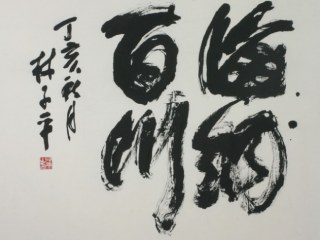 海纳
百川
丁亥秋月
林子平